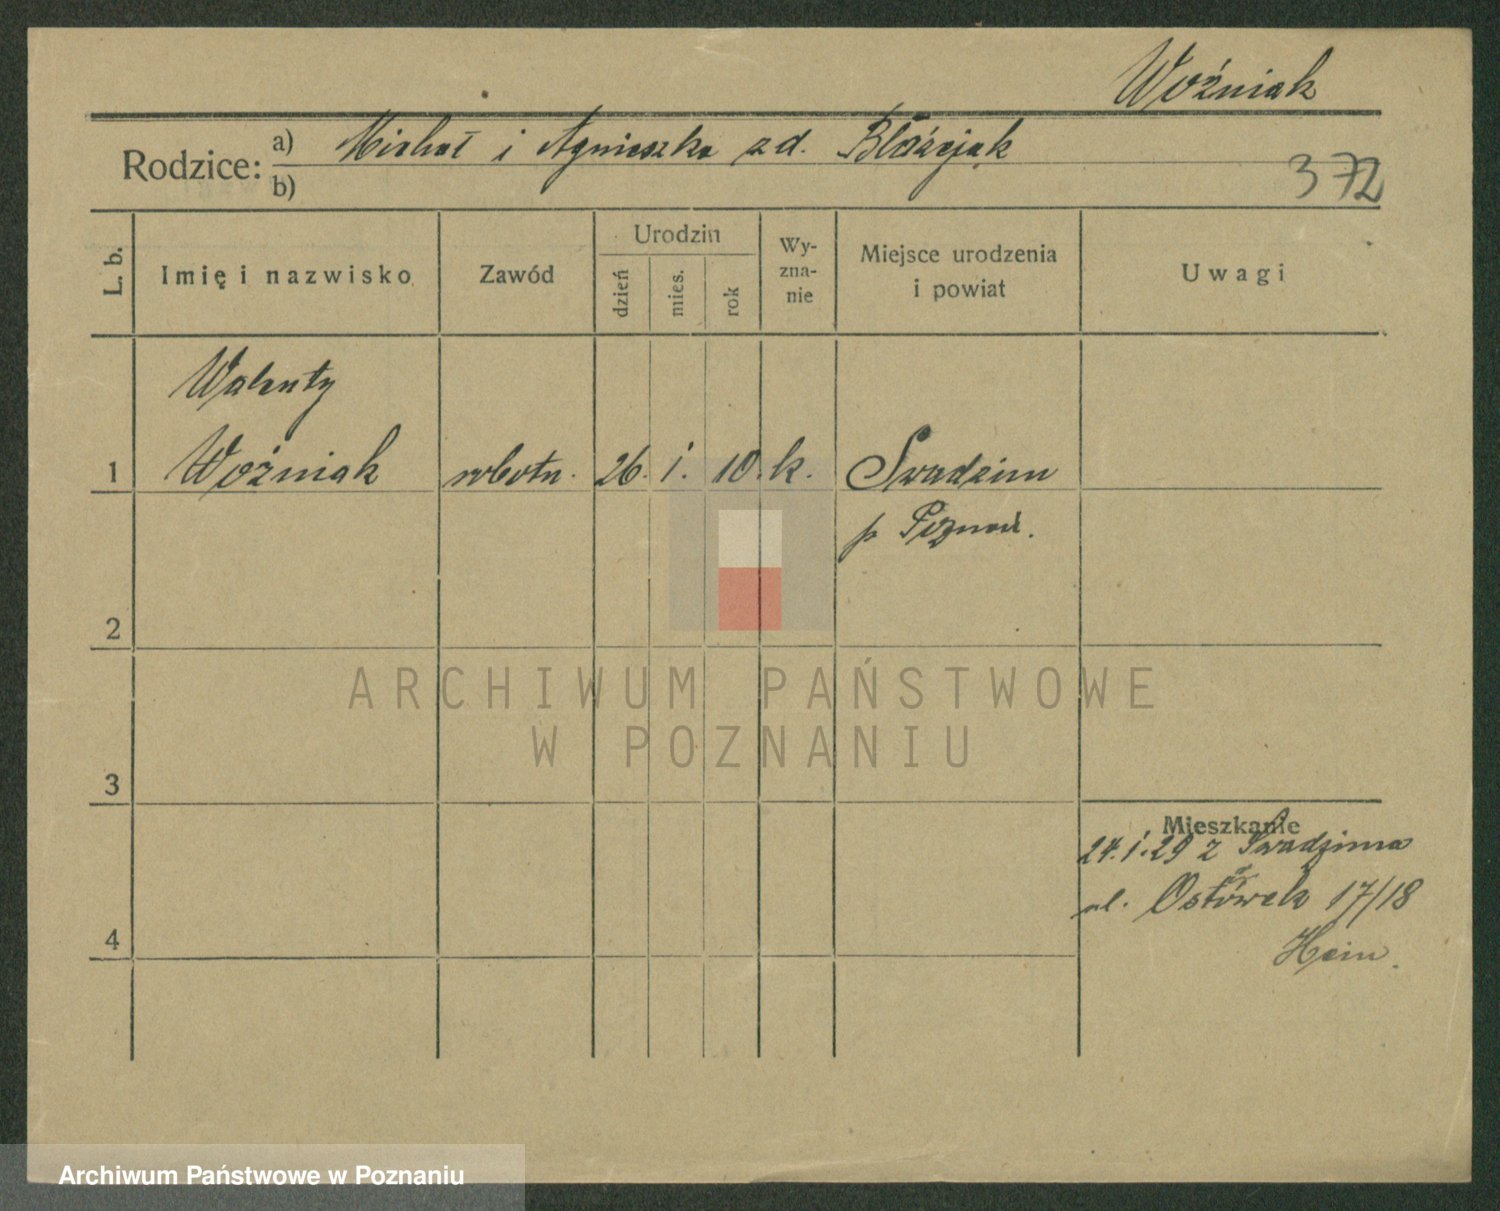 Woźniak
Rodzice: a) Michał i Agnieszka z d. Błażejak
b)
372
L. b. Imię i nazwisko Zawód Urodzin dzień mies. rok Wy-zna-nie Miejsce urodzenia i powiat Uwagi
Walenty
1 Woźniak robotn. 26. 1. 10. k. Swadzim
p Poznań.
2
ARCHIWUM PAŃSTWOWE
W POZNANIU
3
Mieszkanie
24.1.29 z Swadzima
ul. Ostówek 17/18
4
Hein.
Archiwum Państwowe w Poznaniu